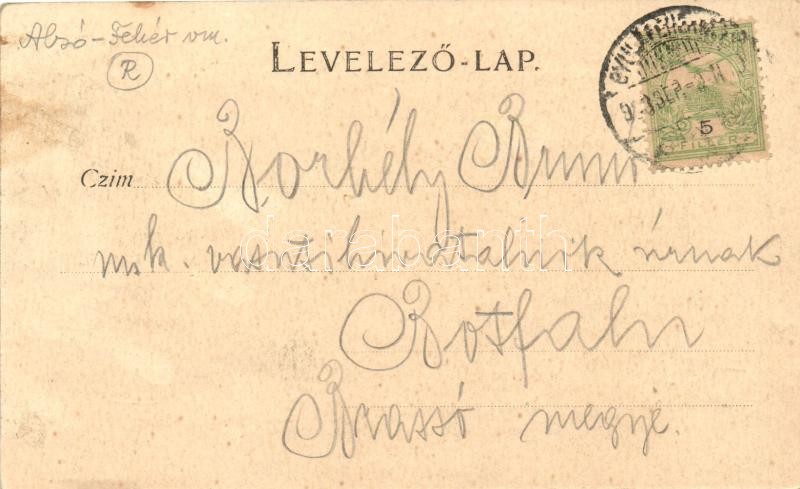 Alsó-Fehér vm.
R
LEVELEZŐ-LAP.
5
FILLER
Czim Borhély Bruno
msk. vasuti hivatalnik úrnak
darabanth
Botfalu
Brassó megye.